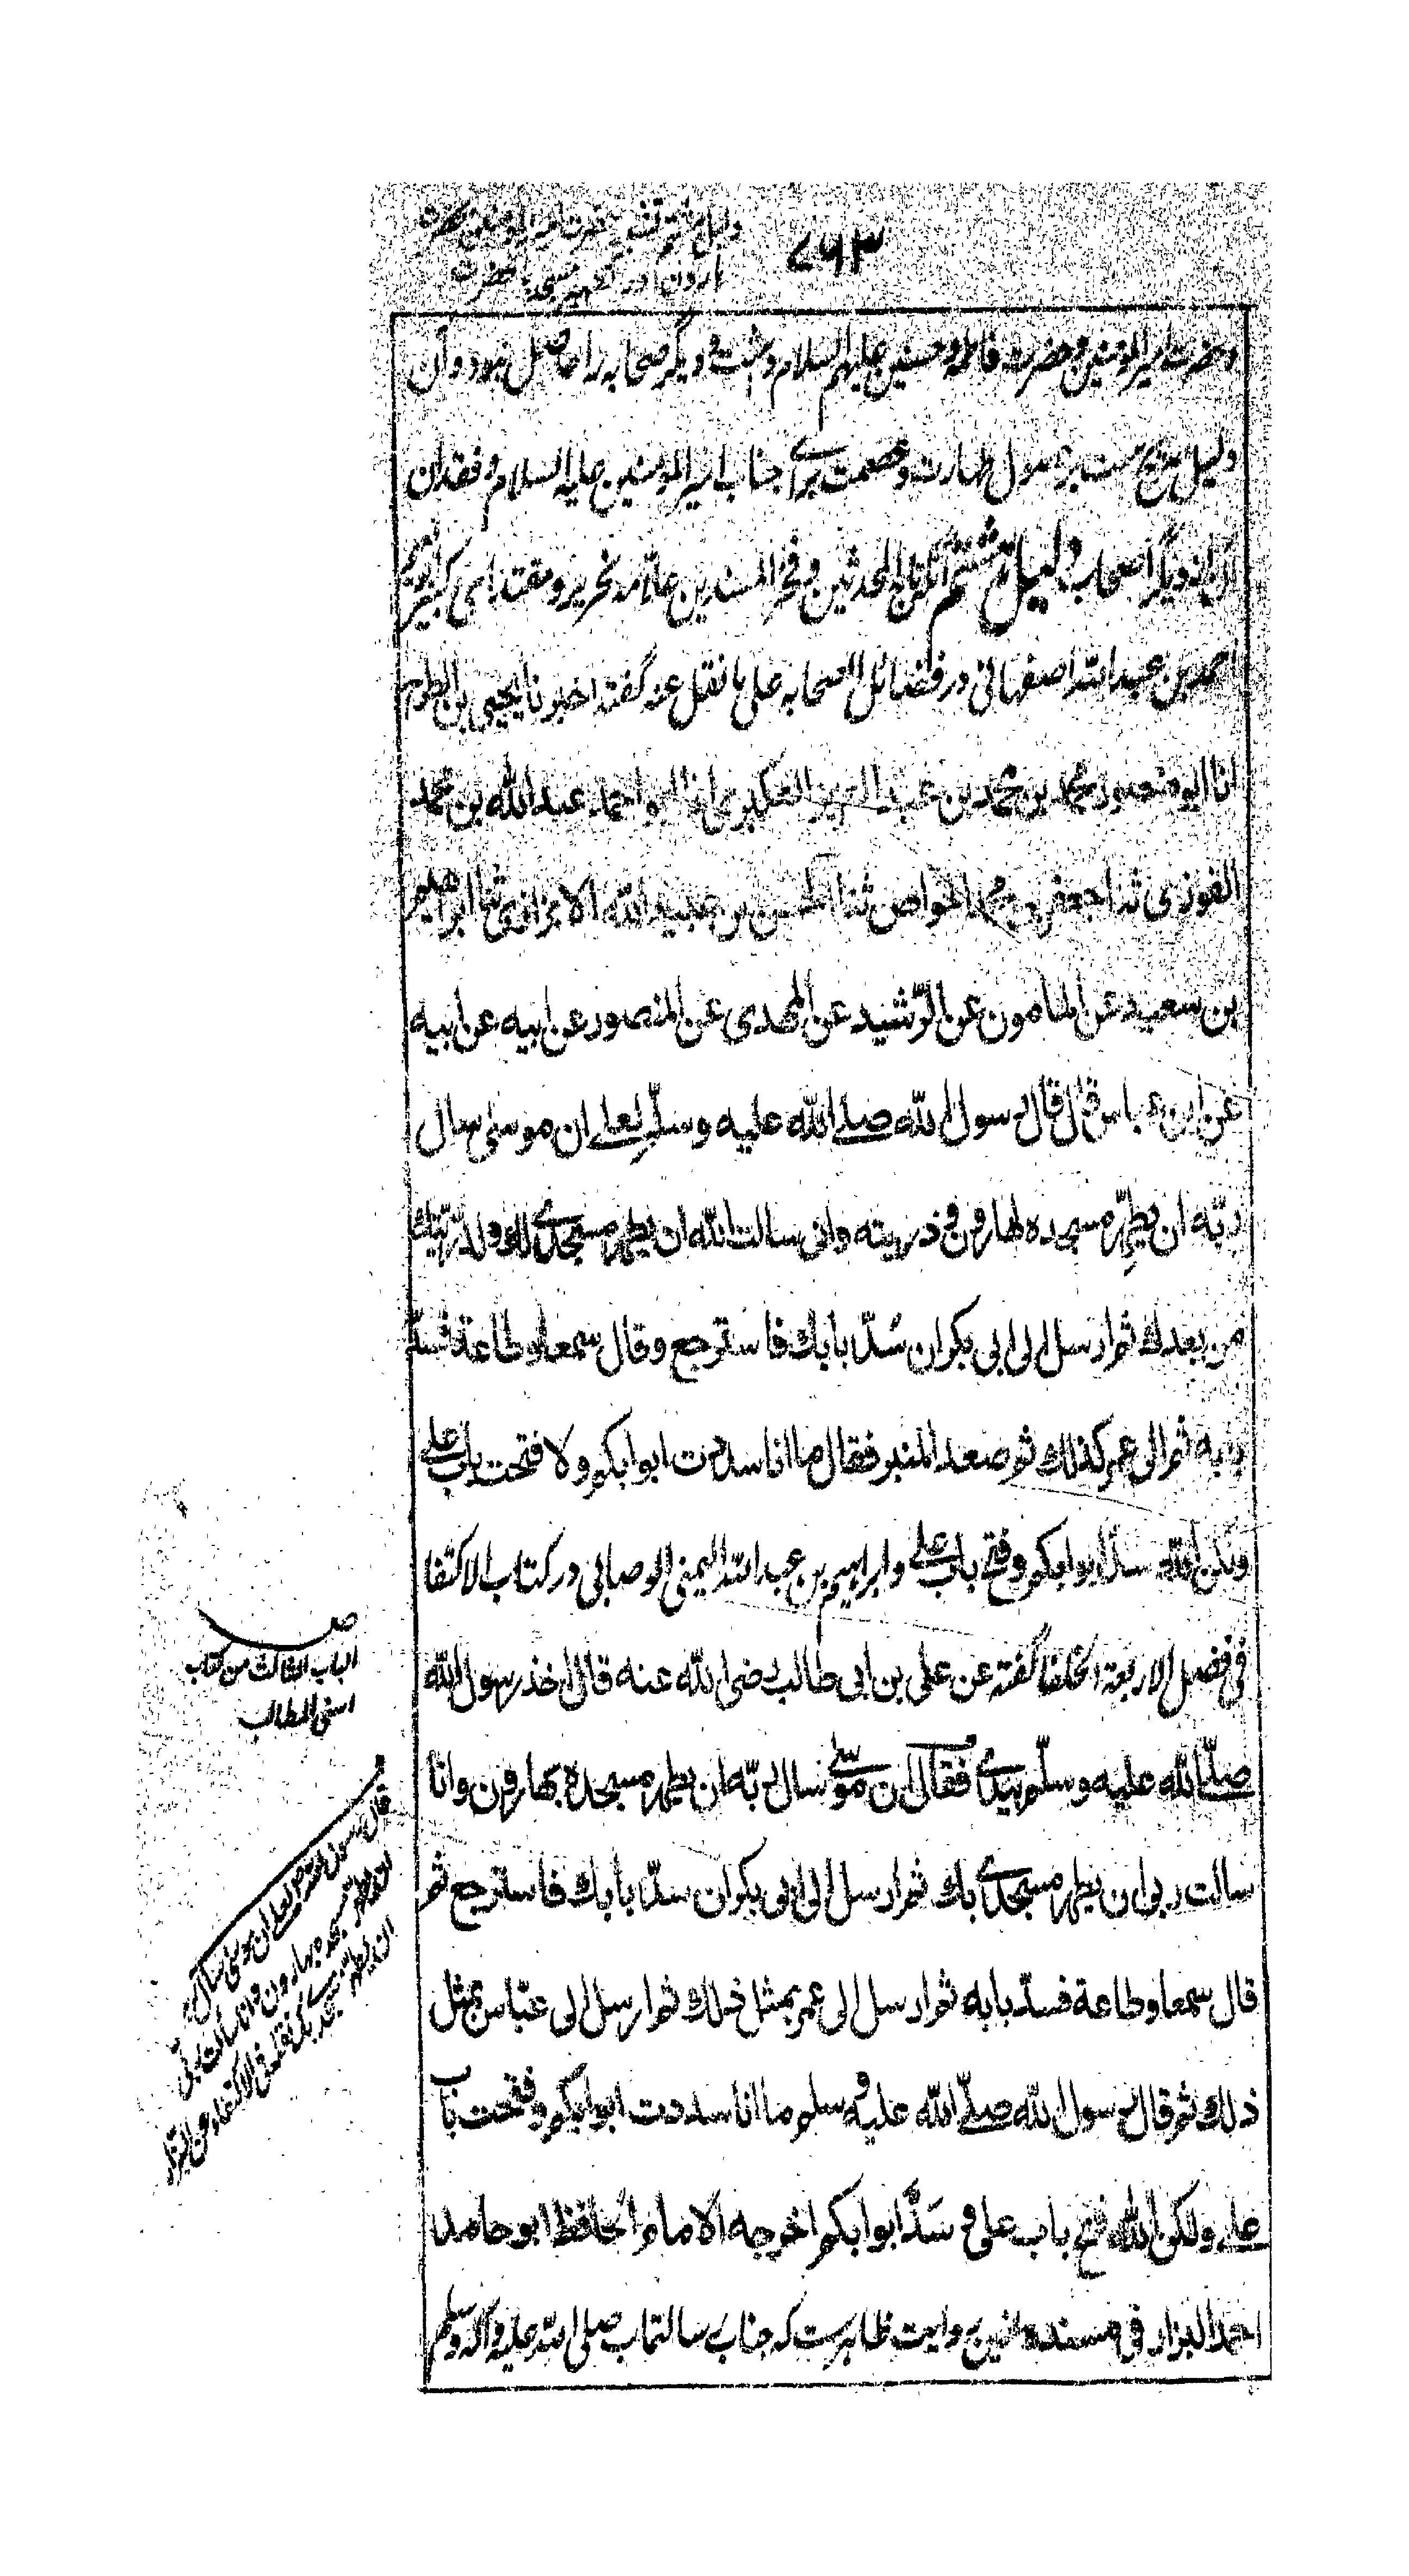 ۷۶۳
دلیل هشتم
هارون اور تطهیر مسجد حضرت
و حضرت امیر المومنین و حضرت فاطمه و حسنین علیهم السلام داشت و دیگر صحابه را حاصل نبود و آن
دلیل صریح ست بر حصول طهارت و عصمت برای جناب امیر المومنین علیه السلام و فقدان
آن از دیگر اصحاب دلیل هشتم آنکه تاج المحدثین و فخر المسندین علامه نحریر و مقتدای کبیر
احمد بن عبد الله اصفهانی در فضائل الصحابه علی ما نقل عنه گفته اخبرنا یحیی بن الطراح
انا ابو منصور محمد بن محمد بن عبد العزیز العکبری انا ابو احمد عبد الله بن محمد
الفوزی ثنا جعفر بن محمد الخواص ثنا الحسن بن عبید الله الابزاری ثنا ابراهیم
بن سعید عن المامون عن الرّشید عن المهدی عن المنصور عن ابیه عن ابیه
عن ابن عباس قال قال رسول الله صلے الله علیه وسلّم لعلے ان موسی سال
ربّه ان یطهّر مسجده لهارون فی ذریته وانی سالت الله ان یطهر مسجدی لك ولذرّیتك
من بعدك ثم ارسل الی ابی بکر ان سُدّ بابك فاسترجع وقال سمعا وطاعة فسدّ
بابه ثم الی عمر کذلك ثم صعد المنبر فقال ما انا سددت ابوابکم ولا فتحت باب علے
ولکن الله سدّ ابوابکم وفتح باب علے و ابراهیم بن عبد الله الیمنی الوصابی در کتاب الاکتفا
فی فضل الاربعة الخلفا گفته عن علی بن ابی طالب رضی الله عنه قال اخذ رسول الله
صلّے الله علیه وسلّم بیدی فقال ان موسی سال ربّه ان یطهر مسجده بهارون وانا
سالت ربی ان یطهر مسجدی بك ثم ارسل الی ابی بکر ان سدّ بابك فاسترجع ثم
قال سمعا وطاعة فسدّ بابه ثم ارسل الی عمر بمثل ذلك ثم ارسل الی عبّاس بمثل
ذلك ثم قال رسول الله صلّے الله علیه وسلم ما انا سددت ابوابکم وفتحت باب
علے ولکن الله فتح باب علی و سَدَّ ابوابکم اخرجه الامام الحافظ ابو حامد
احمد البزار فی مسنده ازین روایت ظاهرست که جناب رسالتماب صلی الله علیه وآله وسلم
صـ
الباب الثالث من کتاب
اسنی المطالب
قال رسول الله ص لعلے ان موسی سال ربّه
ان یطهر مسجده بهارون وانا سألت ربّی
ان یطهر مسجدی بك نقله فی الاکتفاء عن البزار